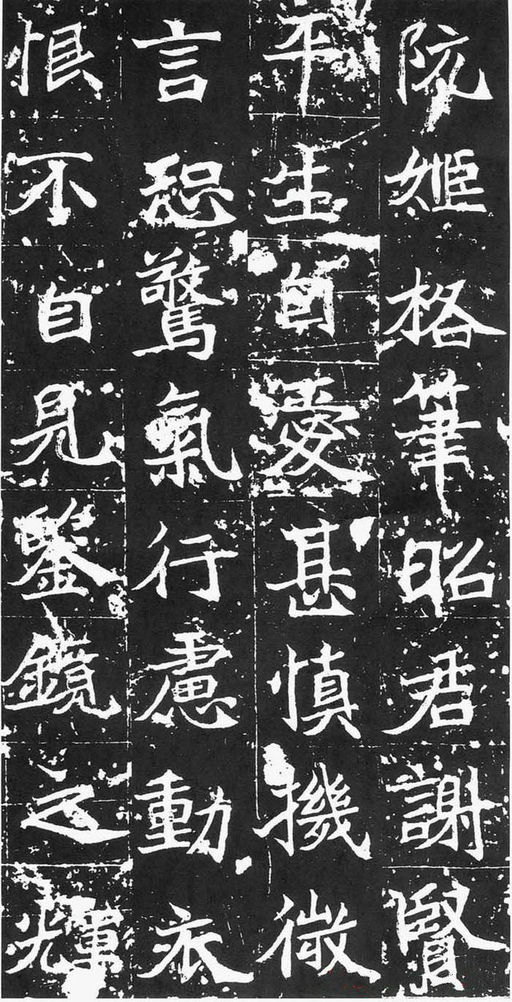 陔姬格筆昭君謝賢
平生自愛甚慎機微
言恐驚氣行慮動衣
惧不自見鑒鏡之輝